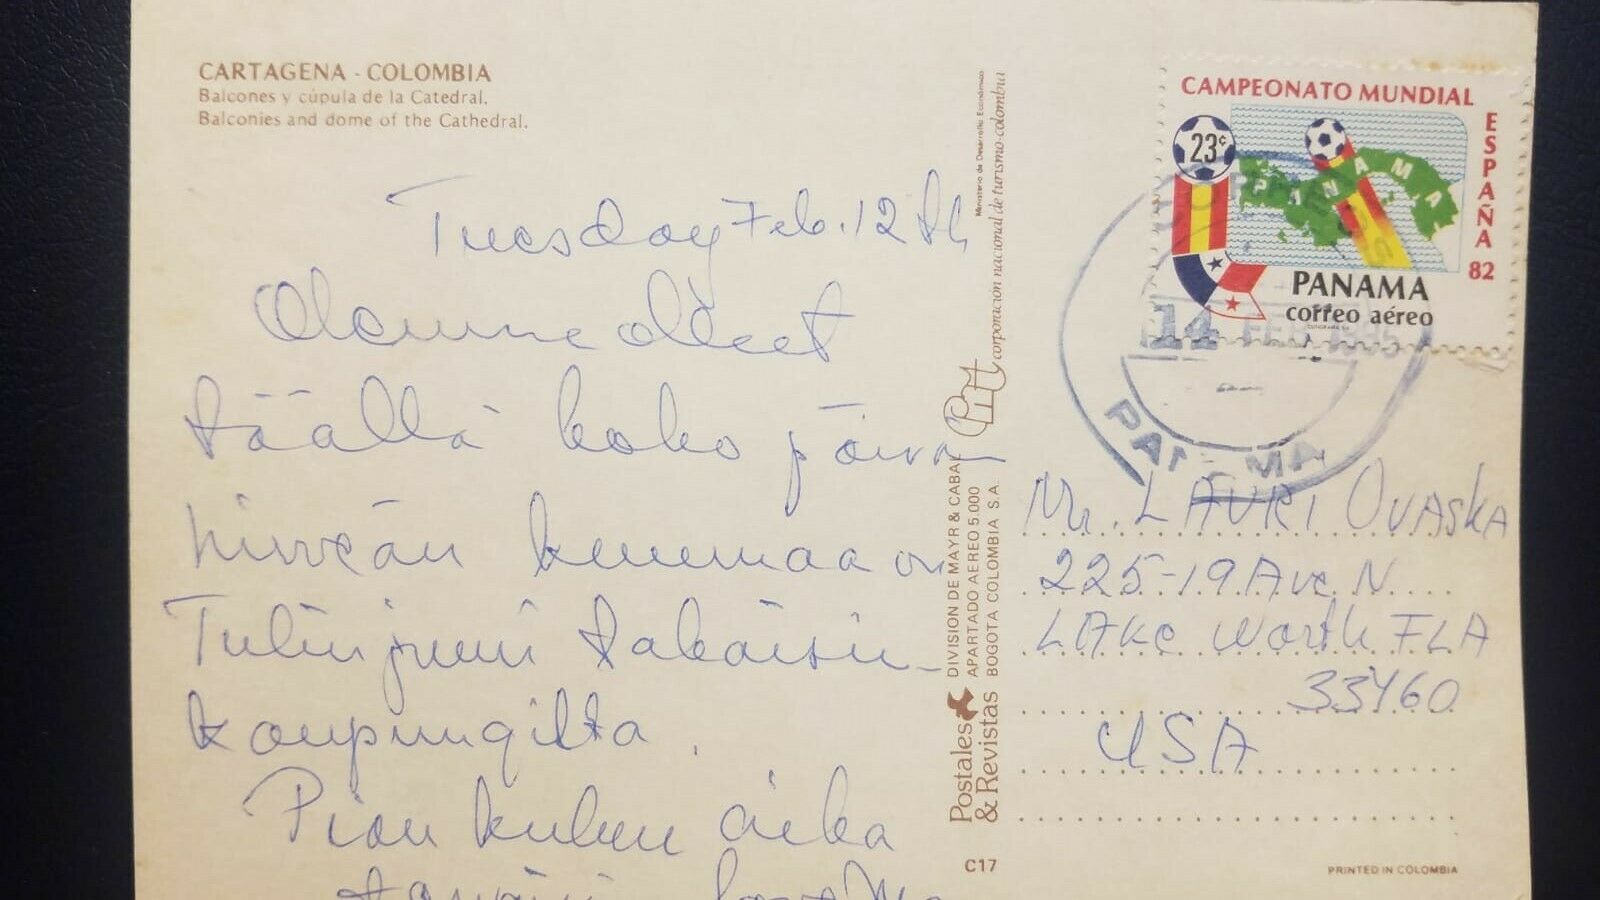 CARTAGENA - COLOMBIA
Balcones y cúpula de la Catedral.
Balconies and dome of the Cathedral.
Tuesday Feb. 12th
Olemme olleet
täällä koko päivän
hirveän kuumaa on
Tulin juuri takaisin
kaupungilta.
Pian kuluu aika
Ministerio de Desarrollo Económico
corporación nacional de turismo-colombia
DIVISION DE MAYR & CABAL
APARTADO AEREO 5.000
BOGOTA COLOMBIA S.A.
Postales
& Revistas
C17
CAMPEONATO MUNDIAL
ESPAÑA 82
23c
PANAMA
PANAMA
correo aéreo
CORREOS
14 FEB
PANAMA
Mr. LAURI OVASKA
225-19 Ave. N.
LAKE Worth FLA
33460
USA
PRINTED IN COLOMBIA